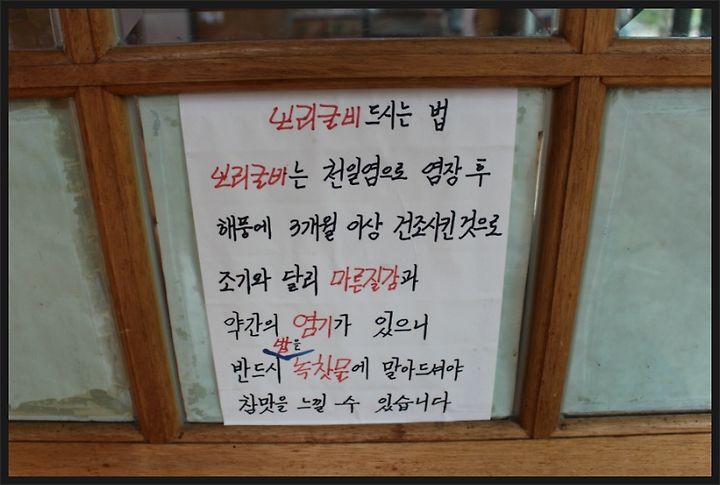 보리굴비 드시는 법
보리굴비는 천일염으로 염장 후
해풍에 3개월 이상 건조시킨 것으로
조기와 달리 마른질감과
약간의 염기가 있으니
밥을
반드시 녹찻물에 말아드셔야
참맛을 느낄 수 있습니다